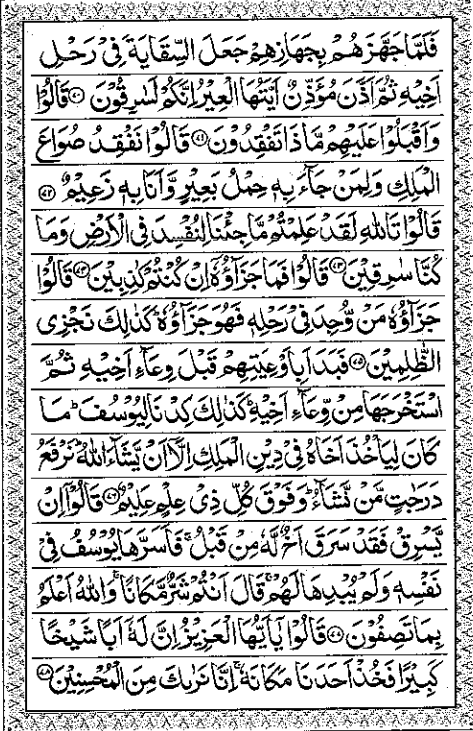 فَلَمَّا جَهَّزَهُمْ بِجَهَازِهِمْ جَعَلَ السِّقَايَةَ فِىْ رَحْلِ
اَخِيْهِ ثُمَّ اَذَّنَ مُؤَذِّنٌ اَيَّتُهَا الْعِيْرُ اِنَّكُمْ لَسٰرِقُوْنَ ۝۷۰ قَالُوْا
وَاَقْبَلُوْا عَلَيْهِمْ مَّاذَا تَفْقِدُوْنَ ۝۷۱ قَالُوْا نَفْقِدُ صُوَاعَ
الْمَلِكِ وَلِمَنْ جَآءَ بِهٖ حِمْلُ بَعِيْرٍ وَّاَنَا بِهٖ زَعِيْمٌ ۝۷۲
قَالُوْا تَاللّٰهِ لَقَدْ عَلِمْتُمْ مَّا جِئْنَا لِنُفْسِدَ فِى الْاَرْضِ وَمَا
كُنَّا سٰرِقِيْنَ ۝۷۳ قَالُوْا فَمَا جَزَآؤُهٗٓ اِنْ كُنْتُمْ كٰذِبِيْنَ ۝۷۴ قَالُوْا
جَزَآؤُهٗ مَنْ وُّجِدَ فِىْ رَحْلِهٖ فَهُوَ جَزَآؤُهٗ ؕ كَذٰلِكَ نَجْزِى
الظّٰلِمِيْنَ ۝۷۵ فَبَدَاَ بِاَوْعِيَتِهِمْ قَبْلَ وِعَآءِ اَخِيْهِ ثُمَّ
اسْتَخْرَجَهَا مِنْ وِّعَآءِ اَخِيْهِ ؕ كَذٰلِكَ كِدْنَا لِيُوْسُفَ ؕ مَا
كَانَ لِيَاْخُذَ اَخَاهُ فِىْ دِيْنِ الْمَلِكِ اِلَّاۤ اَنْ يَّشَآءَ اللّٰهُ ؕ نَرْفَعُ
دَرَجٰتٍ مَّنْ نَّشَآءُ ؕ وَفَوْقَ كُلِّ ذِىْ عِلْمٍ عَلِيْمٌ ۝۷۶ قَالُوْۤا اِنْ
يَّسْرِقْ فَقَدْ سَرَقَ اَخٌ لَّهٗ مِنْ قَبْلُ ۚ فَاَسَرَّهَا يُوْسُفُ فِىْ
نَفْسِهٖ وَلَمْ يُبْدِهَا لَهُمْ ۚ قَالَ اَنْتُمْ شَرٌّ مَّكَانًا ۚ وَاللّٰهُ اَعْلَمُ
بِمَا تَصِفُوْنَ ۝۷۷ قَالُوْا يٰۤاَيُّهَا الْعَزِيْزُ اِنَّ لَهٗۤ اَبًا شَيْخًا
كَبِيْرًا فَخُذْ اَحَدَنَا مَكَانَهٗ ۚ اِنَّا نَرٰىكَ مِنَ الْمُحْسِنِيْنَ ۝۷۸